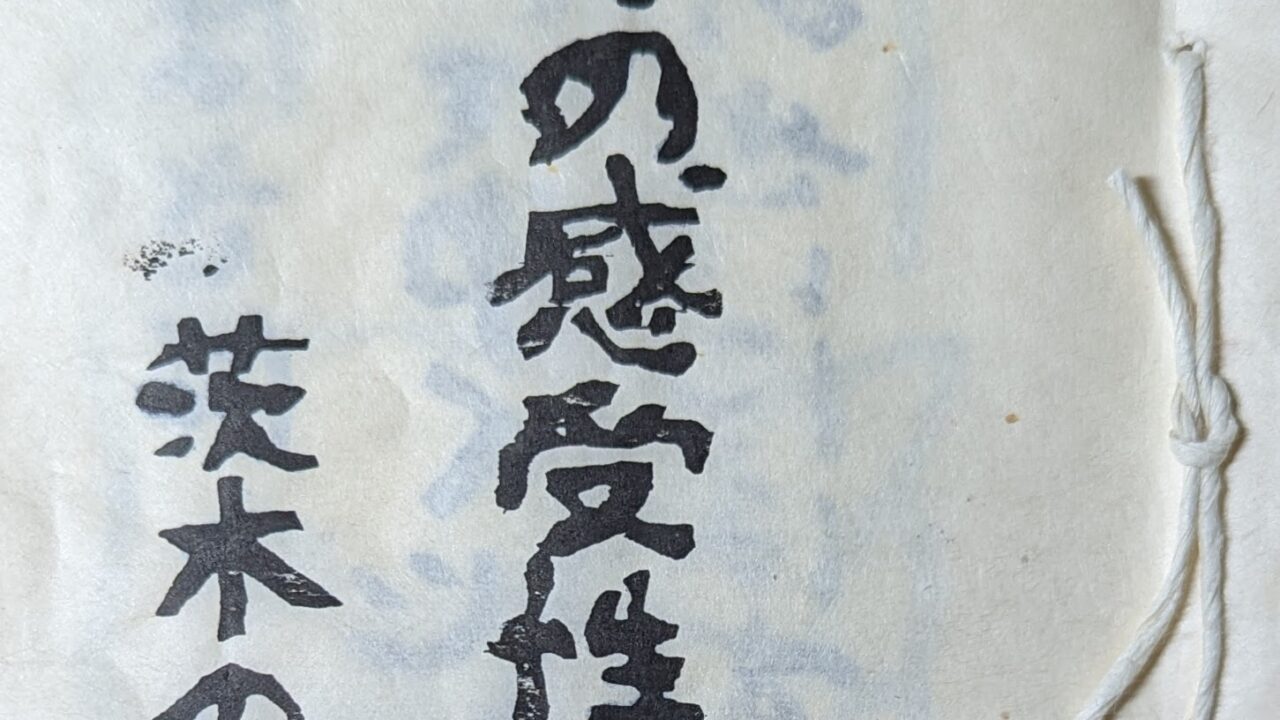 の感受性
茨木の